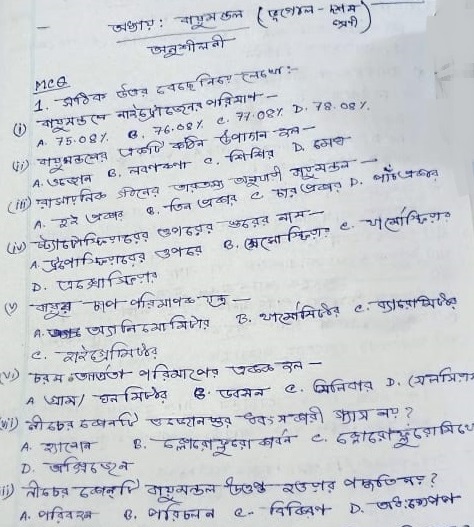 অধ্যায়: বায়ুমণ্ডল (ভূগোল - দশম শ্রেণী)
অনুশীলনী
MCQ
1. সঠিক উত্তর বেছে নিয়ে লেখো:-
(i) বায়ুমণ্ডলে নাইট্রোজেনের পরিমাণ —
A. 75.08% B. 76.08% C. 77.08% D. 78.08%
(ii) বায়ুমণ্ডলের একটি কঠিন উপাদান হল —
A. ওজোন B. লবণকণা C. শিশির D. মেঘ
(iii) রাসায়নিক গঠনের তারতম্য অনুযায়ী বায়ুমণ্ডল —
A. দুই প্রকার B. তিন প্রকার C চার প্রকার D. পাঁচ প্রকার
(iv) স্ট্র্যাটোস্ফিয়ারের ওপরের স্তরের নাম —
A. ট্রপোস্ফিয়ারের ওপরে B. মেসোস্ফিয়ার C. থার্মোস্ফিয়ার
D. এক্সোস্ফিয়ার
(v) বায়ুর চাপ পরিমাপক যন্ত্র —
A. অ্যানিমোমিটার B. থার্মোমিটার C. ব্যারোমিটার
C. হাইগ্রোমিটার
(vi) চরম আর্দ্রতা পরিমাপের একক হল —
A গ্রাম/ ঘন মিটার B. ডবসন C. মিলিবার D. (সেলসিয়াস
নীচের কোনটি ওজোনস্তর ধ্বংসকারী গ্যাস নয়?
A. হ্যালোন B. ক্লোরোফ্লুরো কার্বন C. ক্লোরোফ্লুরোমিথেন
D. অক্সিজেন
নীচের কোনটি বায়ুমণ্ডল উত্তপ্ত হওয়ার পদ্ধতি নয়?
A. পরিবহন B. পরিচলন C- বিকিরণ D. অধঃক্ষেপণ